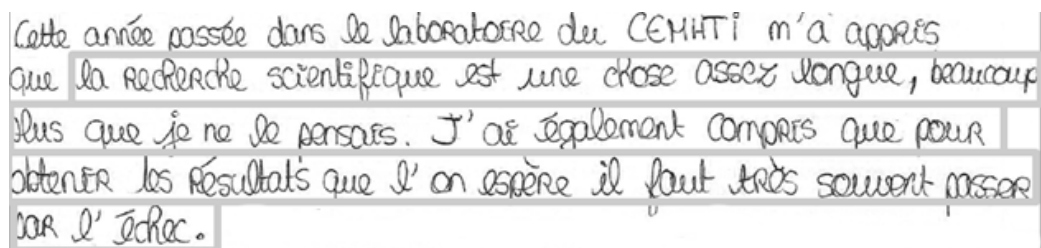 Cette année passée dans le laboratoire du CEMHTi m'a appris
que la recherche scientifique est une chose assez longue, beaucoup
plus que je ne le pensais. J'ai également compris que pour
obtenir les résultats que l'on espère il faut très souvent passer
par l'échec.